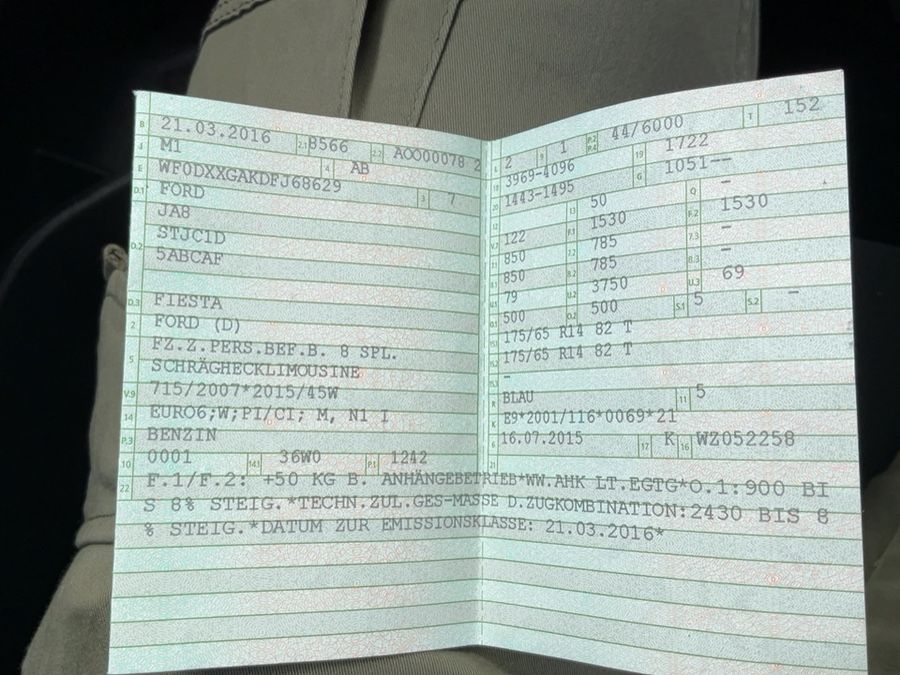 B 21.03.2016 2.1 8566 2.2 AOO00078 2
J M1 4 AB
E WF0DXXGAKDFJ68629
D.1 FORD 3 7
JA8
D.2 STJC1D
5ABCAF
D.3 FIESTA
2 FORD (D)
5 FZ.Z.PERS.BEF.B. 8 SPL.
SCHRÄGHECKLIMOUSINE
V.9 715/2007*2015/45W
14 EURO6;W;PI/CI; M, N1 I
P.3 BENZIN
10 0001 14.1 36W0 P.1 1242
L 2 9 1 P.2 P.4 44/6000 T 152
18 3969-4096 19 1722
20 1443-1495 G 1051--
12 – 13 50 Q –
V.7 122 F.1 1530 F.2 1530
7.1 850 7.2 785 7.3 –
8.1 850 8.2 785 8.3 –
U.1 79 U.2 3750 U.3 69
O.1 500 O.2 500 S.1 5 S.2 –
15.1 175/65 R14 82 T
15.2 175/65 R14 82 T
15.3 –
R BLAU 11 5
K E9*2001/116*0069*21
6 16.07.2015 17 K 16 WZ052258
21
22 F.1/F.2: +50 KG B. ANHÄNGEBETRIEB*WW.AHK LT.EGTG*O.1:900 BI
S 8% STEIG.*TECHN.ZUL.GES-MASSE D.ZUGKOMBINATION:2430 BIS 8
% STEIG.*DATUM ZUR EMISSIONSKLASSE: 21.03.2016*